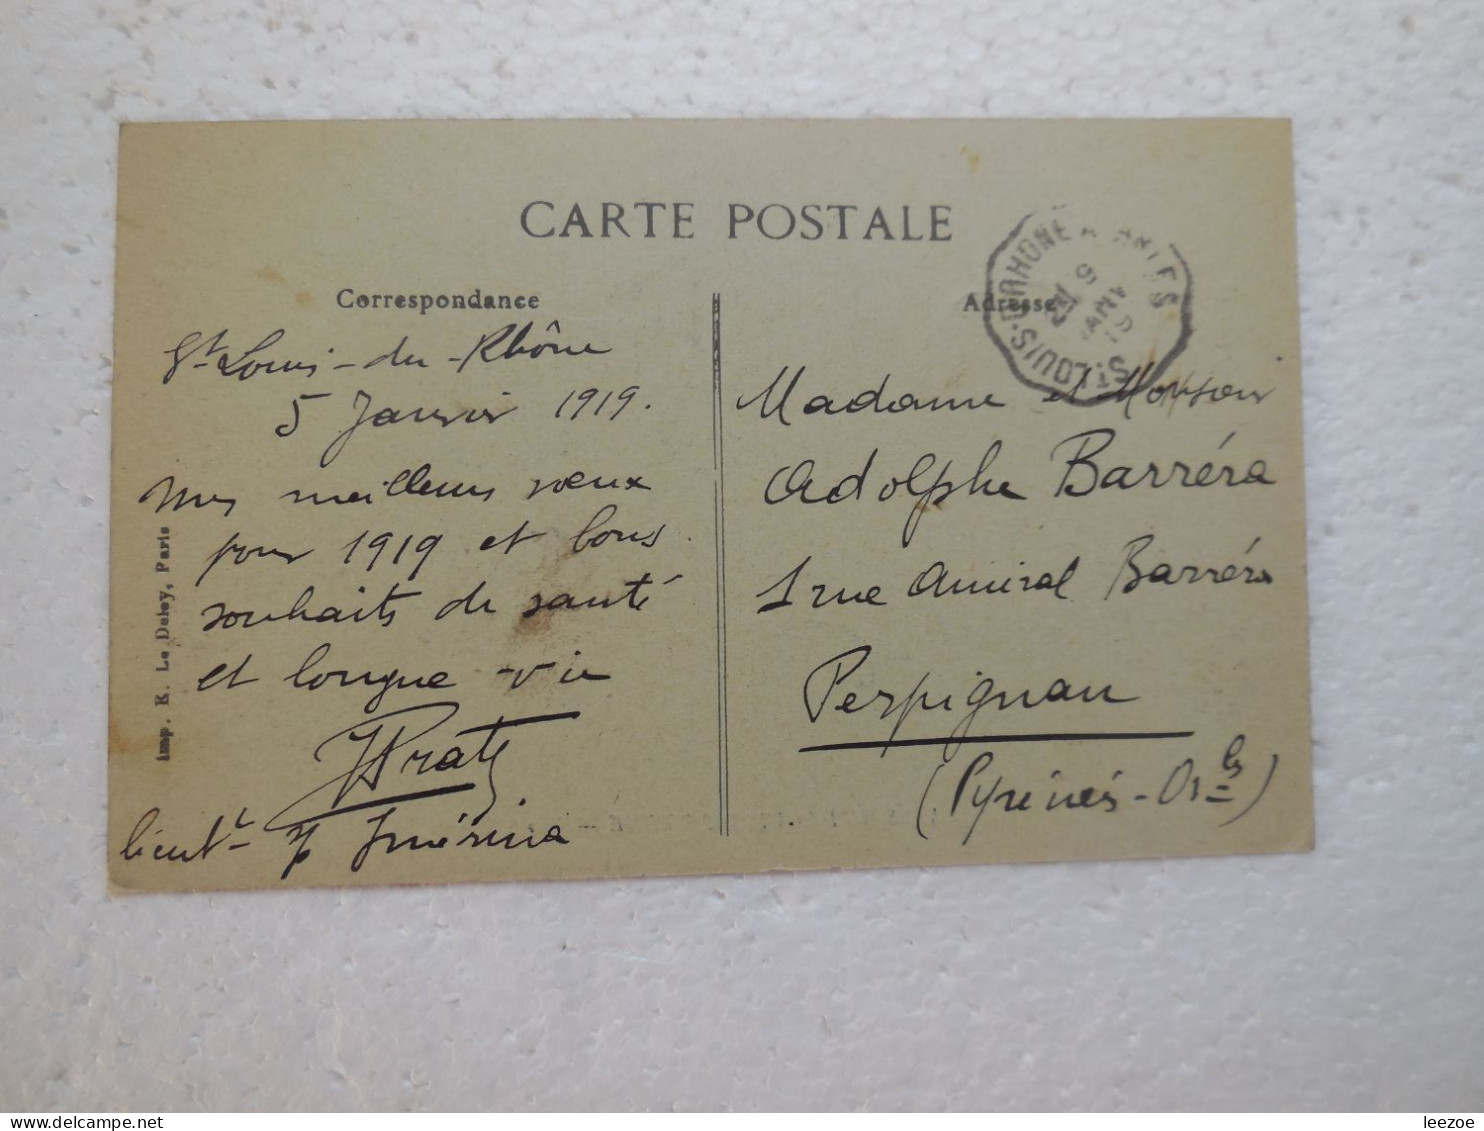 CARTE POSTALE
Correspondance
St Louis-du-Rhône
5 Janvier 1919.
Mes meilleurs voeux
pour 1919 et bons
souhaits de santé
et longue vie
JPrats
lieut-
Imp. E. Le Deley, Paris
Adresse
ST LOUIS-DU-RHONE A ARLES
Madame et Monsieur
Adolphe Barréra
1 rue Amiral Barréra
Perpignan
(Pyrénés-Ores)
leezoe